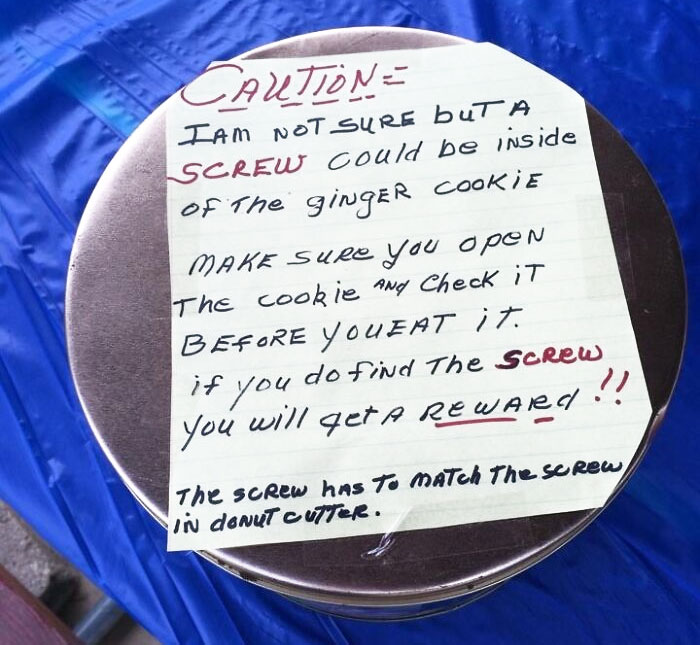 CAUTION=
I AM NOT SURE buT A
SCREW could be iNside
OF The gingER COOKiE
MAKE SURe you opeN
The cookie ANd Check iT
BEFORE YOU EAT iT.
if you do find The SCREW
you will get A REWARd !!
The SCREW hAS To MATCh The SCREW
iN doNUT CUTTER.